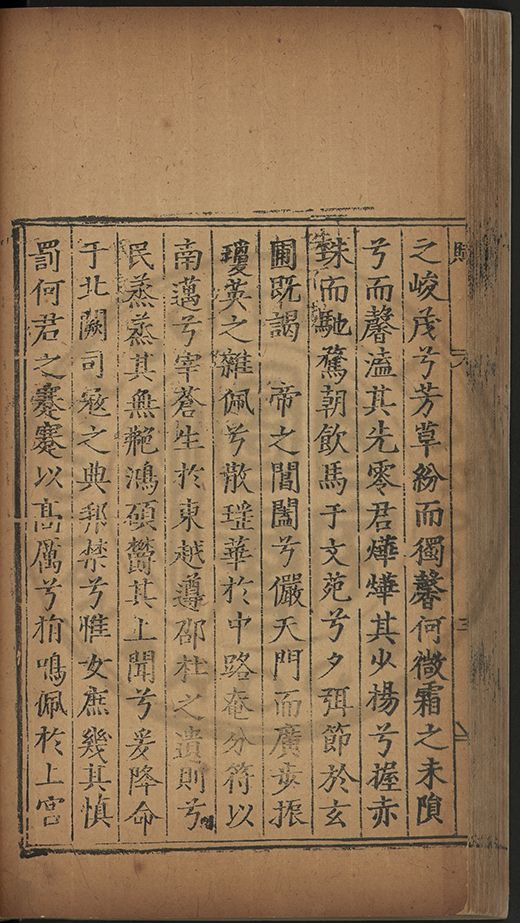 賦
三
之峻茂兮芳草紛而獨馨何微霜之未隕
兮而馨溘其先零君燁燁其少楊兮握赤
珠而馳騖朝飲馬于文苑兮夕弭節於玄
圃既謁　帝之閶闔兮儼天門而廣振
瓊英之雜佩兮散瑤華於中路奄分符以
南邁兮宰蒼生於東越遵邵杜之遺則兮
民蒸蒸其無鴻碩鬱其上聞兮爰降命
于北闕司寇之典邦禁兮惟女庶幾其慎
罰何君之蹇蹇以高厲兮鳴佩於上宮